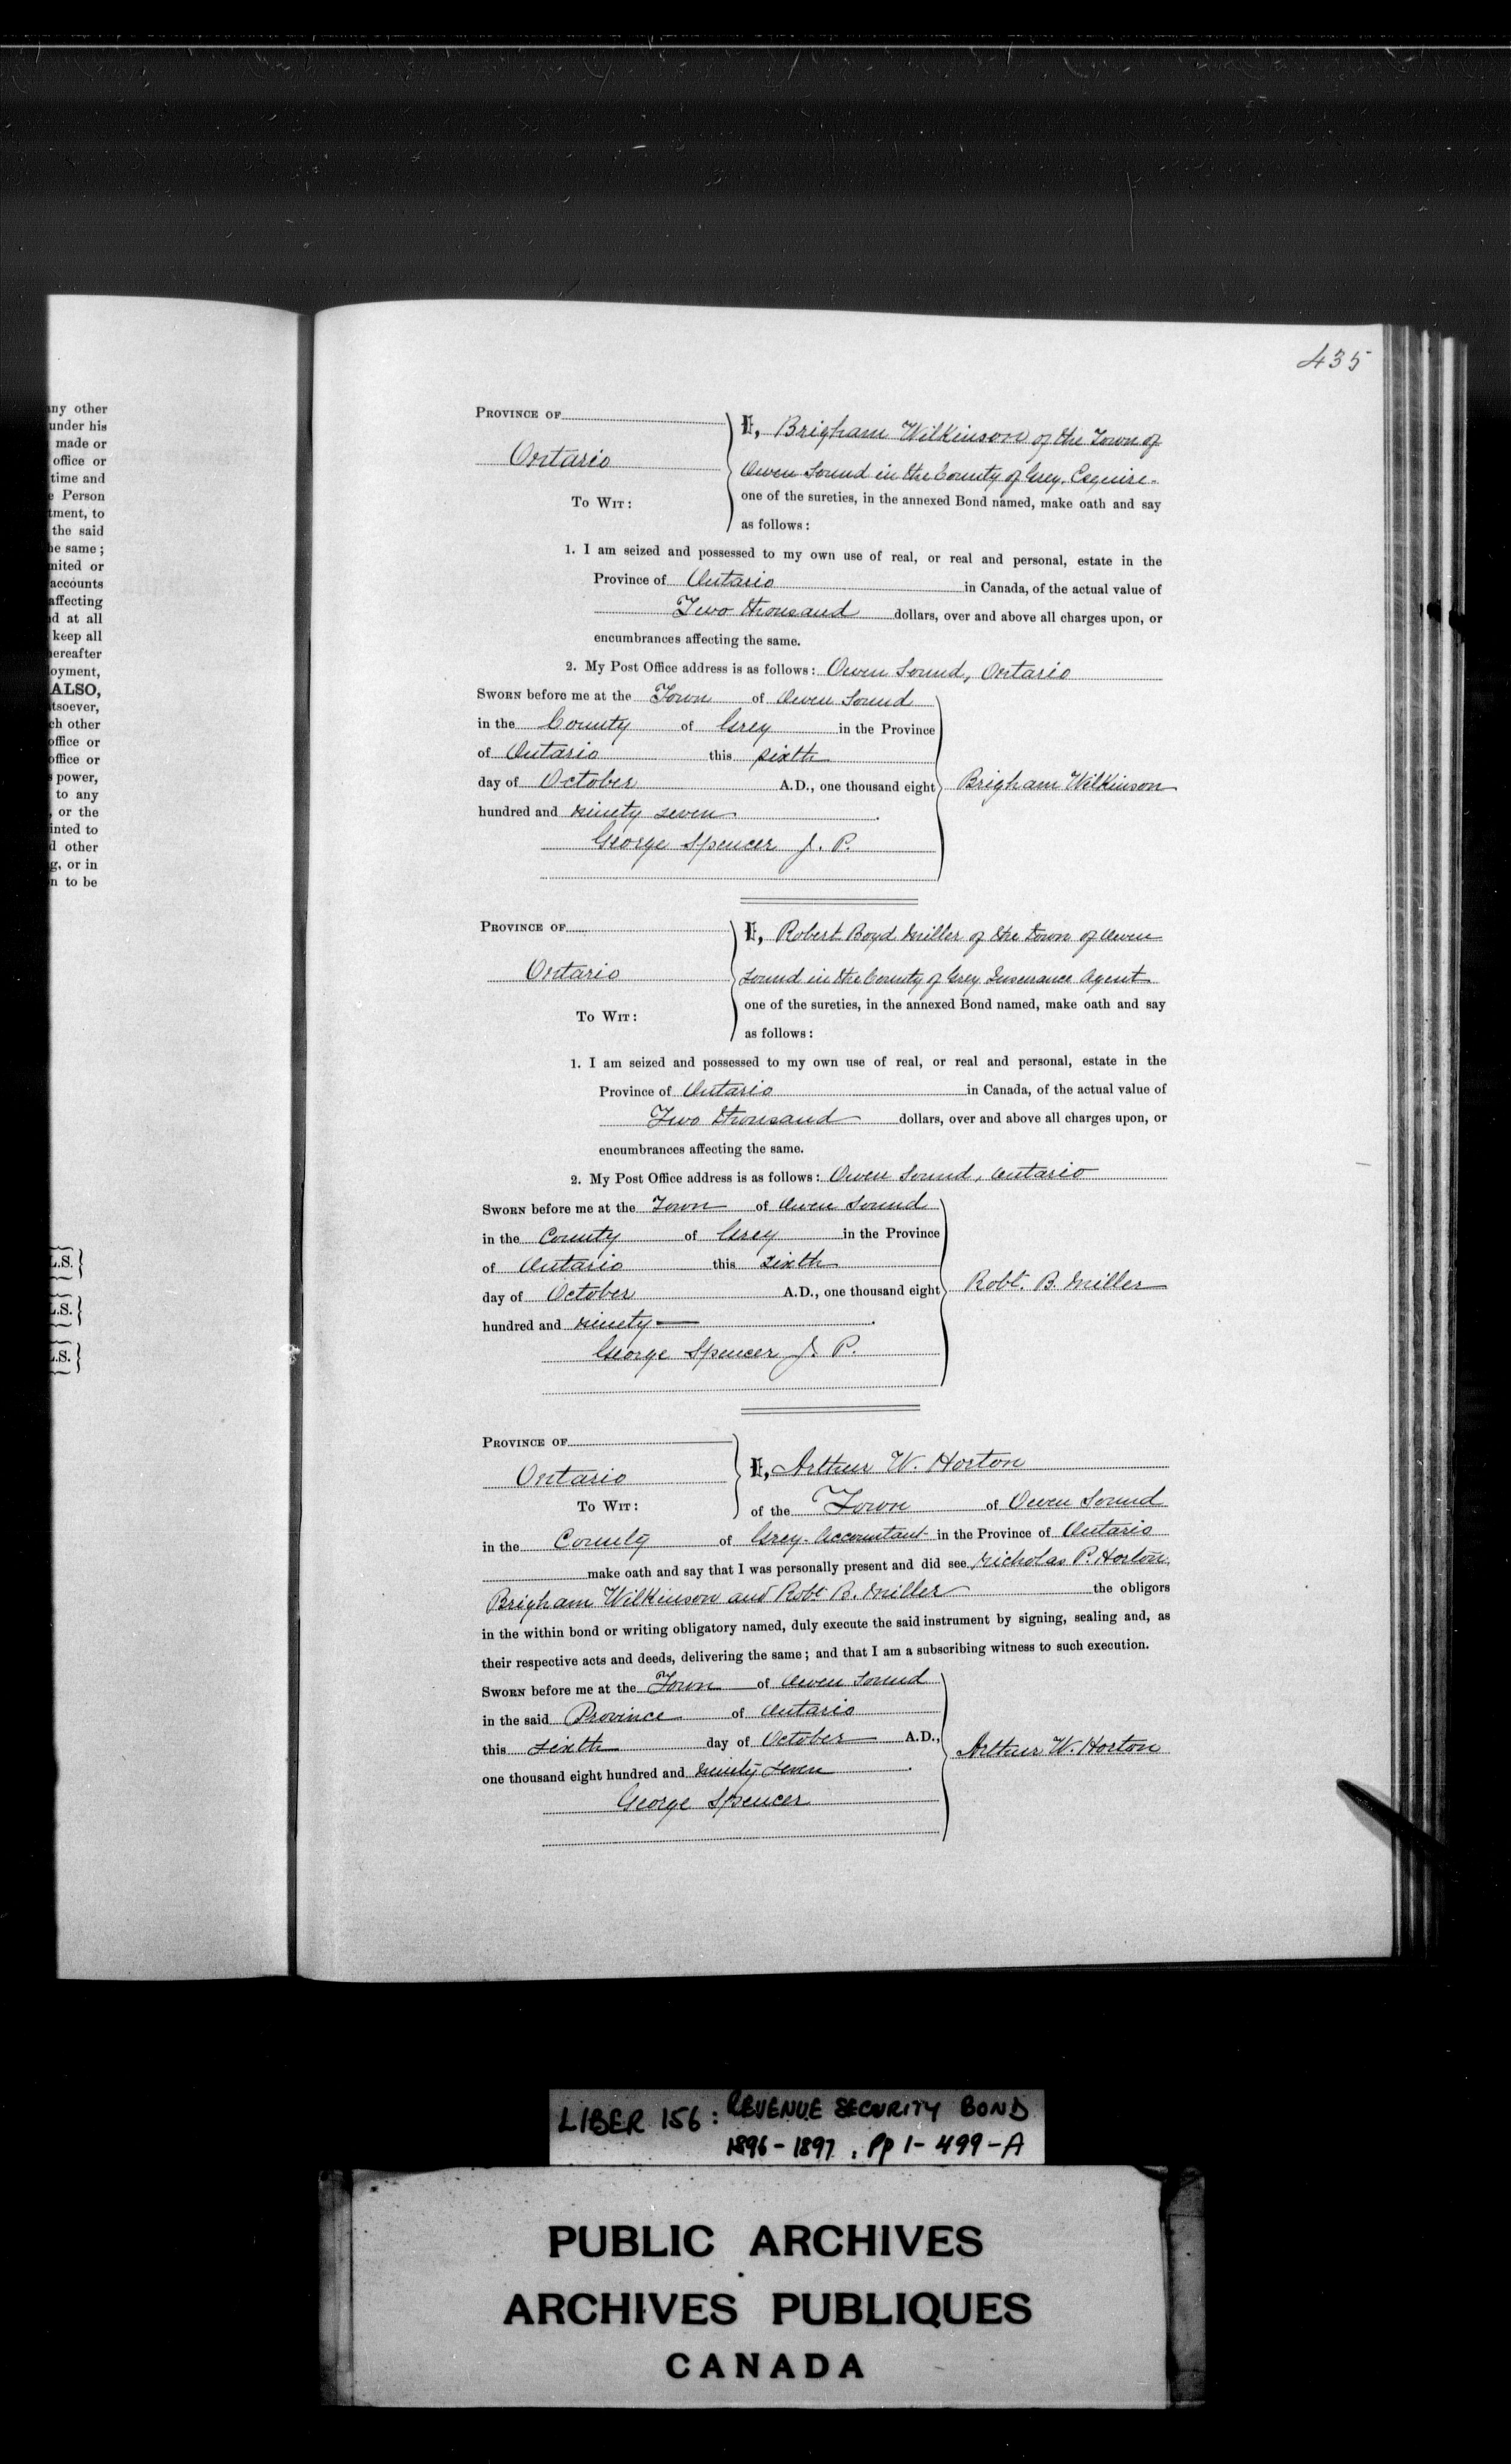 435
any other
under his
made or
office or
time and
e Person
tment, to
the said
he same;
mited or
accounts
affecting
d at all
keep all
hereafter
oyment,
ALSO,
tsoever,
ch other
office or
office or
power,
to any
, or the
inted to
d other
g, or in
n to be
L.S.}
L.S.}
L.S.}
PROVINCE OF
Ontario
TO WIT:
I, Brigham Wilkinson of the Town of
Owen Sound in the County of Grey. Esquire.
one of the sureties, in the annexed Bond named, make oath and say
as follows:
1. I am seized and possessed to my own use of real, or real and personal, estate in the
Province of Ontario in Canada, of the actual value of
Two thousand dollars, over and above all charges upon, or
encumbrances affecting the same.
2. My Post Office address is as follows: Owen Sound, Ontario
SWORN before me at the Town of Owen Sound
in the County of Grey in the Province
of Ontario this sixth
day of October A.D., one thousand eight
hundred and ninety seven.
George Spencer J. P.
Brigham Wilkinson
PROVINCE OF
Ontario
TO WIT:
I, Robert Boyd Miller of the Town of Owen
Sound in the County of Grey Insurance Agent.
one of the sureties, in the annexed Bond named, make oath and say
as follows:
1. I am seized and possessed to my own use of real, or real and personal, estate in the
Province of Ontario in Canada, of the actual value of
Two thousand dollars, over and above all charges upon, or
encumbrances affecting the same.
2. My Post Office address is as follows: Owen Sound, Ontario
SWORN before me at the Town of Owen Sound
in the County of Grey in the Province
of Ontario this sixth
day of October A.D., one thousand eight
hundred and ninety —.
George Spencer J. P.
Robt. B. Miller
PROVINCE OF
Ontario
TO WIT:
I, Arthur W. Horton
of the Town of Owen Sound
in the County of Grey. Accountant in the Province of Ontario
make oath and say that I was personally present and did see Nicholas P. Horton,
Brigham Wilkinson and Robt B. Miller the obligors
in the within bond or writing obligatory named, duly execute the said instrument by signing, sealing and, as
their respective acts and deeds, delivering the same; and that I am a subscribing witness to such execution.
SWORN before me at the Town of Owen Sound
in the said Province of Ontario
this sixth day of October A.D.,
one thousand eight hundred and ninety seven.
George Spencer
Arthur W. Horton
LIBER 156: REVENUE SECURITY BOND
1896-1897, Pp 1-499-A
PUBLIC ARCHIVES
ARCHIVES PUBLIQUES
CANADA